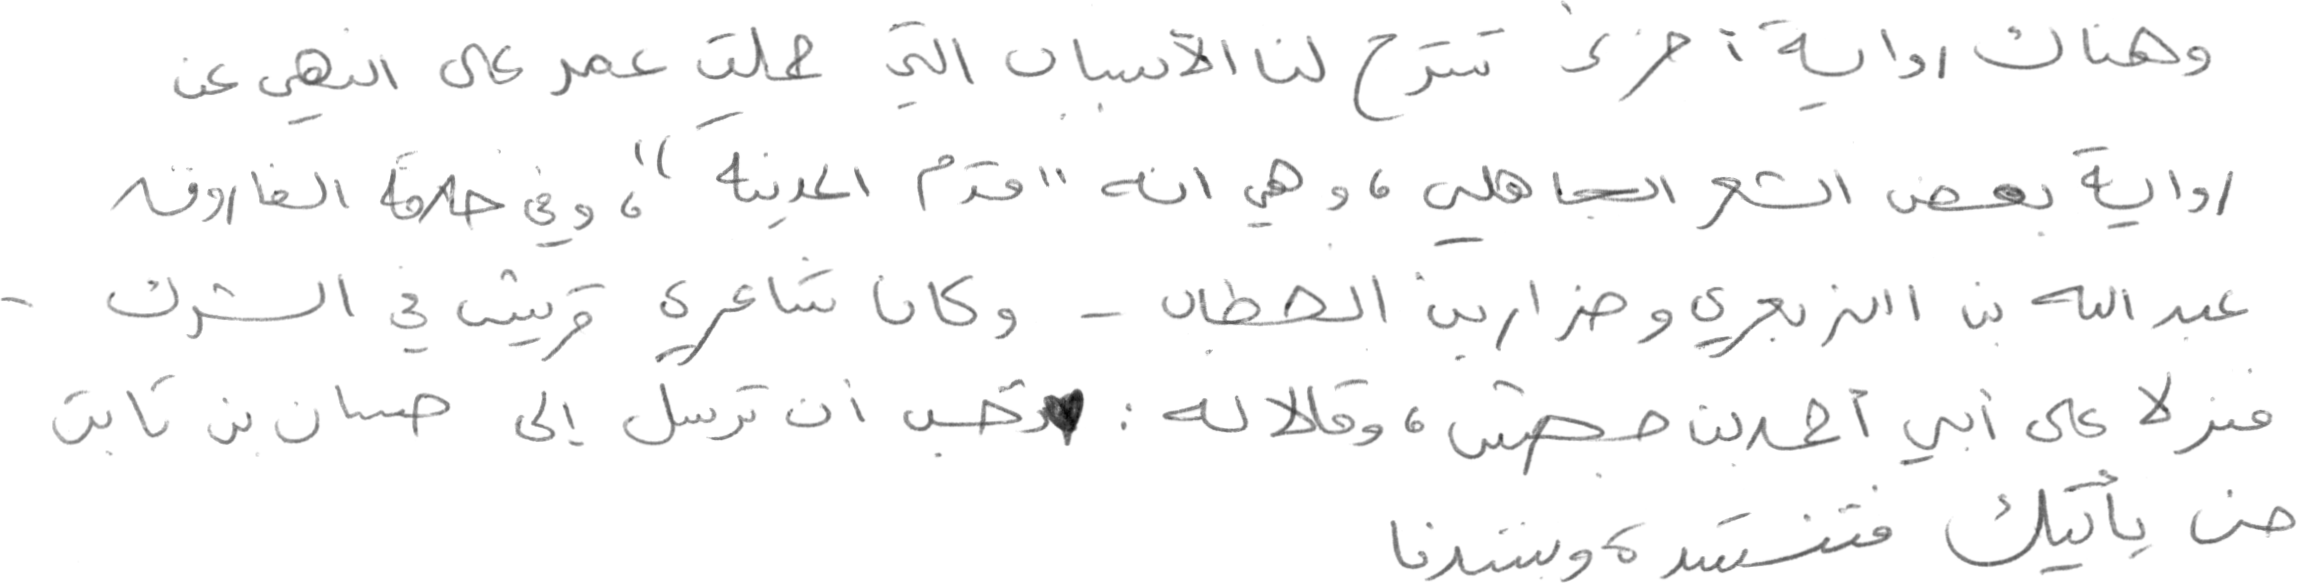 وهناك رواية أخرى تشرح لنا الأسباب التي حملت عمر على النهي عن
رواية بعض الشعر الجاهلي، وهي انه "قدم المدينة"، وفي خلافة الفاروق
عبد الله بن الزبعري وضرار بن الخطاب - وكانا شاعري قريش في الشرك -
فنزلا على أبي أحمد بن جحش، وقالا له: نحب أن ترسل إلى حسان بن ثابت
حتى يأتيك فتنشده وينشدنا